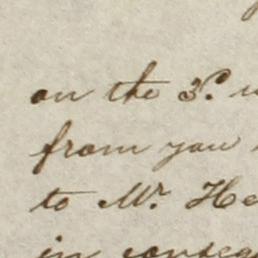 on the 3d.
from you
to Mr. He
in conseq